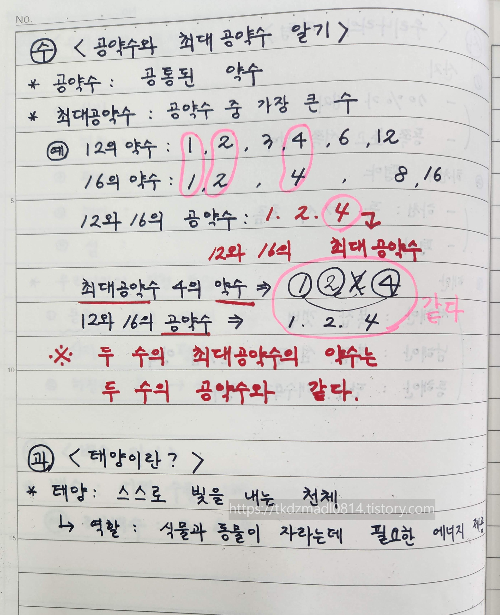 NO.
수 < 공약수와 최대 공약수 알기 >
* 공약수 : 공통된 약수
* 최대공약수 : 공약수 중 가장 큰 수
예 12의 약수 : 1, 2, 3, 4, 6, 12
16의 약수 : 1, 2, 4, 8, 16
12와 16의 공약수 : 1. 2. 4
12와 16의 최대공약수
최대공약수 4의 약수 ⇒ 1 2 × 4
12와 16의 공약수 ⇒ 1. 2. 4
같다
※ 두 수의 최대공약수의 약수는
두 수의 공약수와 같다.
과 < 태양이란? >
* 태양 : 스스로 빛을 내는 천체
https://tkdzmadl0814.tistory.com
↳ 역할 : 식물과 동물이 자라는데 필요한 에너지